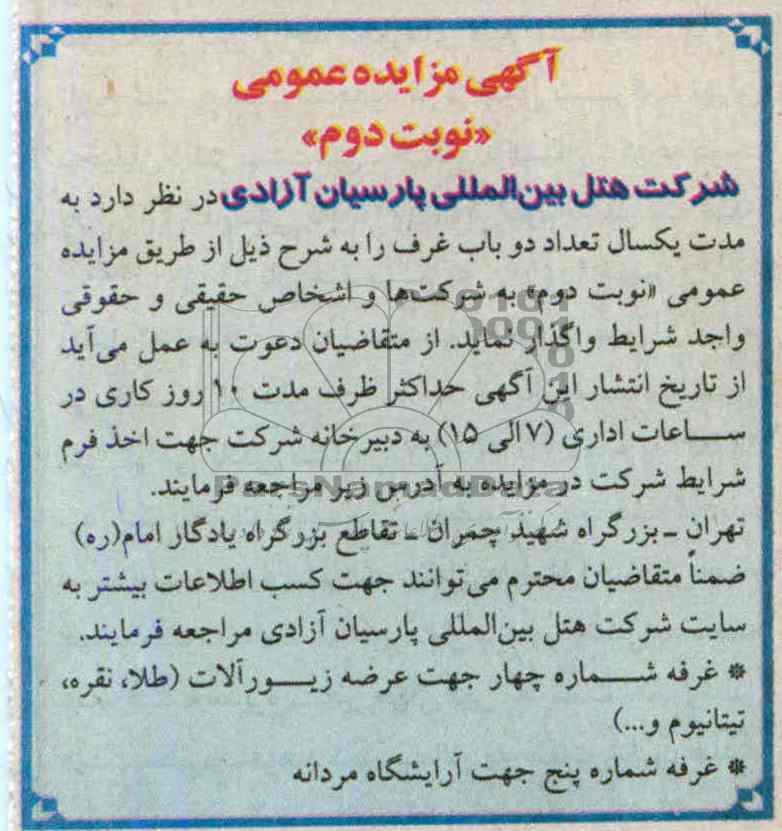 آگهی مزایده عمومی
«نوبت دوم»
شرکت هتل بین‌المللی پارسیان آزادی در نظر دارد به
مدت یکسال تعداد دو باب غرف را به شرح ذیل از طریق مزایده
عمومی «نوبت دوم» به شرکت‌ها و اشخاص حقیقی و حقوقی
واجد شرایط واگذار نماید. از متقاضیان دعوت به عمل می‌آید
از تاریخ انتشار این آگهی حداکثر ظرف مدت ۱۰ روز کاری در
ساعات اداری (۷ الی ۱۵) به دبیرخانه شرکت جهت اخذ فرم
شرایط شرکت در مزایده به آدرس زیر مراجعه فرمایند.
ParsNamadData
تهران ـ بزرگراه شهید چمران ـ تقاطع بزرگراه یادگار امام(ره)
ضمناً متقاضیان محترم می‌توانند جهت کسب اطلاعات بیشتر به
سایت شرکت هتل بین‌المللی پارسیان آزادی مراجعه فرمایند.
* غرفه شماره چهار جهت عرضه زیورآلات (طلا، نقره،
تیتانیوم و...)
* غرفه شماره پنج جهت آرایشگاه مردانه